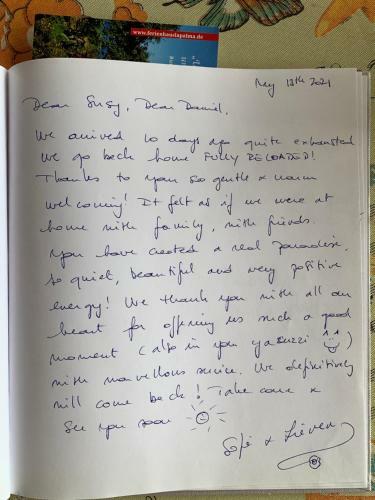 www.ferienhauslapalma.de
May 18th 2021
Dear Susy, Dear Daniel,
We arrived 10 days ago quite exhausted
We go back home FULLY RELOADED!
Thanks to your so gentle & warm
welcoming! It felt as if we were at
home with family, with friends.
You have created a real paradise,
so quiet, beautiful and very positive
energy! We thank you with all our
heart for offering us such a good
moment (also in your yacuzzi)
with marvellous service. We definitively
will come back! Take care x
See you soon
Sofie & Lieven